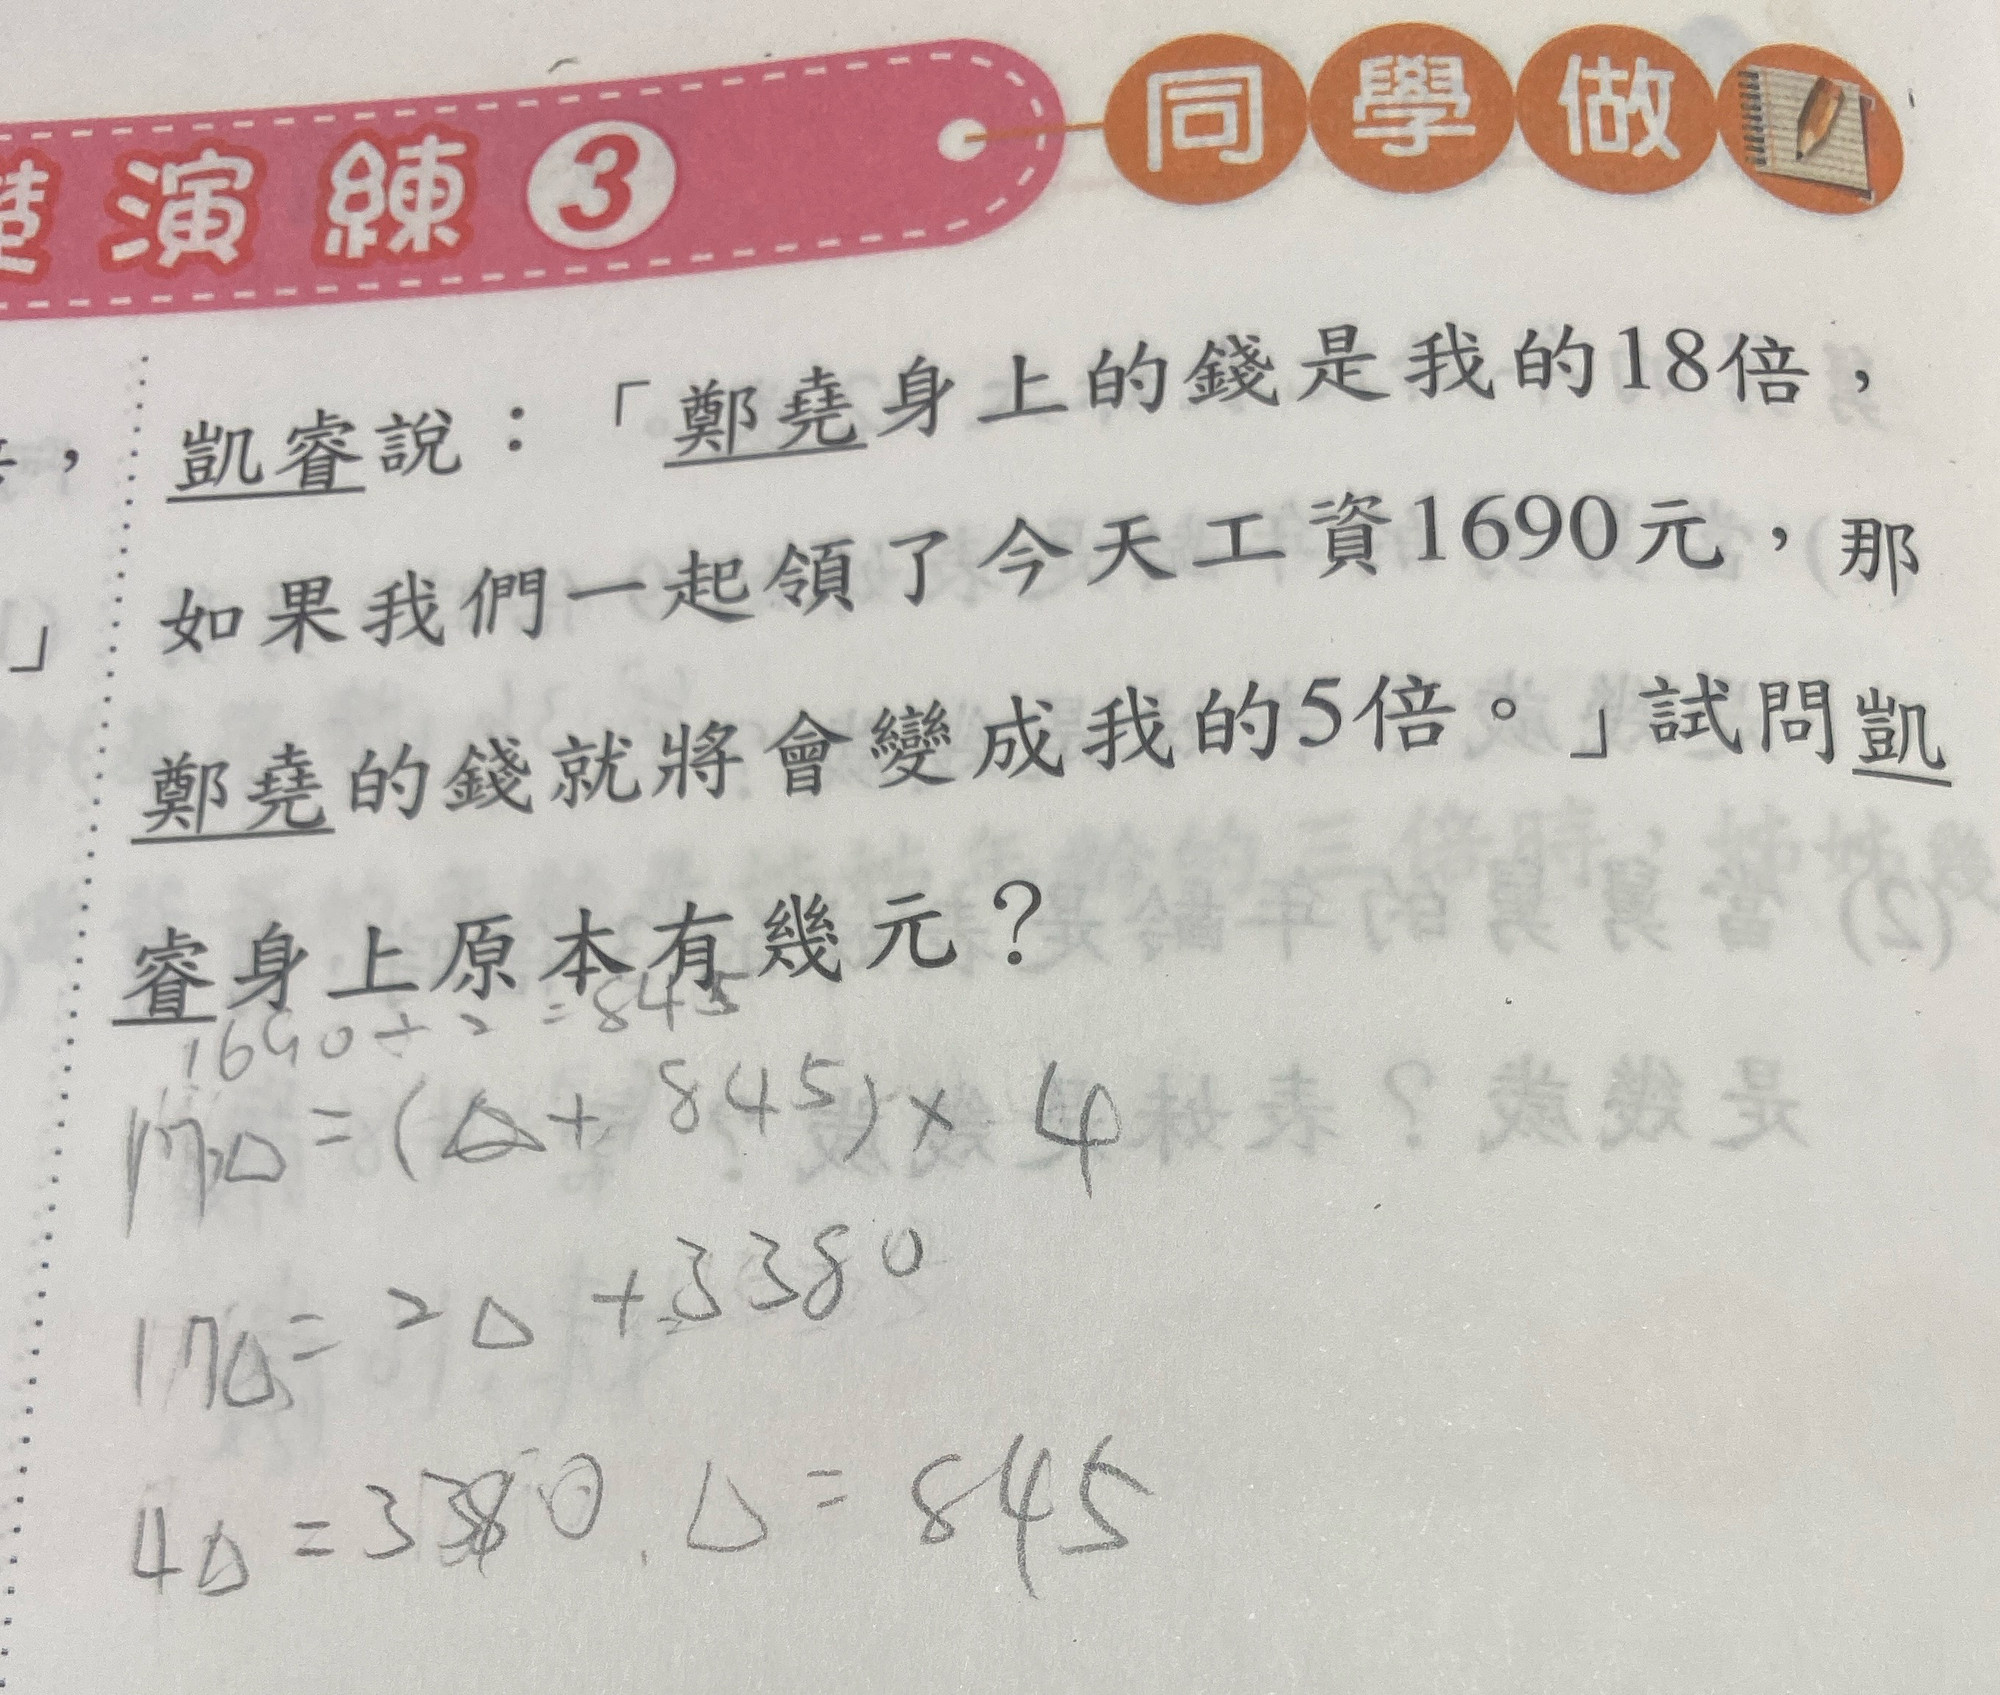 演練3 同學做
凱睿說：「鄭堯身上的錢是我的18倍，
如果我們一起領了今天工資1690元，那
鄭堯的錢就將會變成我的5倍。」試問凱
睿身上原本有幾元？
1690÷2=845
17△=(△+845)×4
17△=2△+3380
4△=3380 △=845